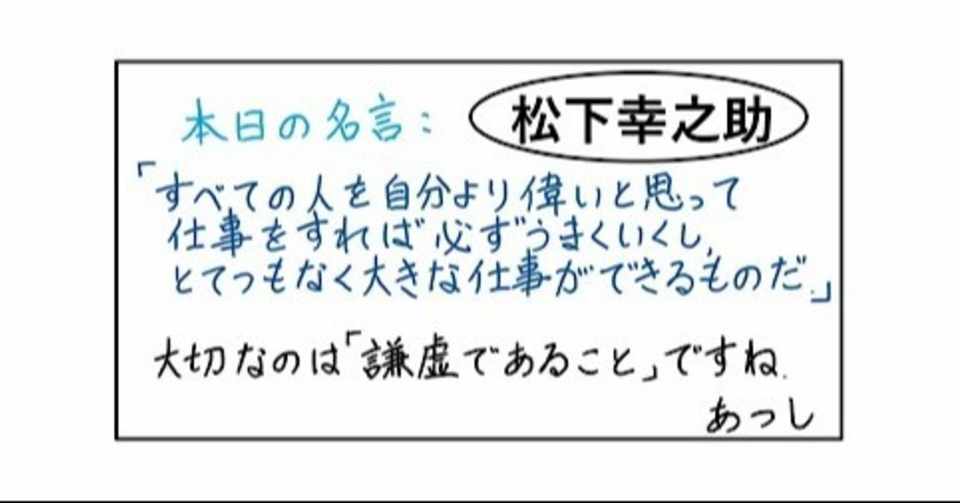 本日の名言: 松下幸之助
「すべての人を自分より偉いと思って
仕事をすれば必ずうまくいくし、
とてつもなく大きな仕事ができるものだ.」
大切なのは「謙虚であること」ですね.
あっし